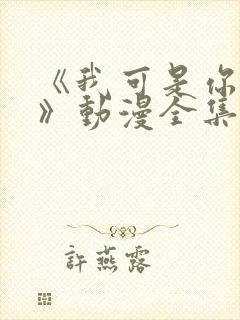 《我可是你
》動漫全集
許燕露